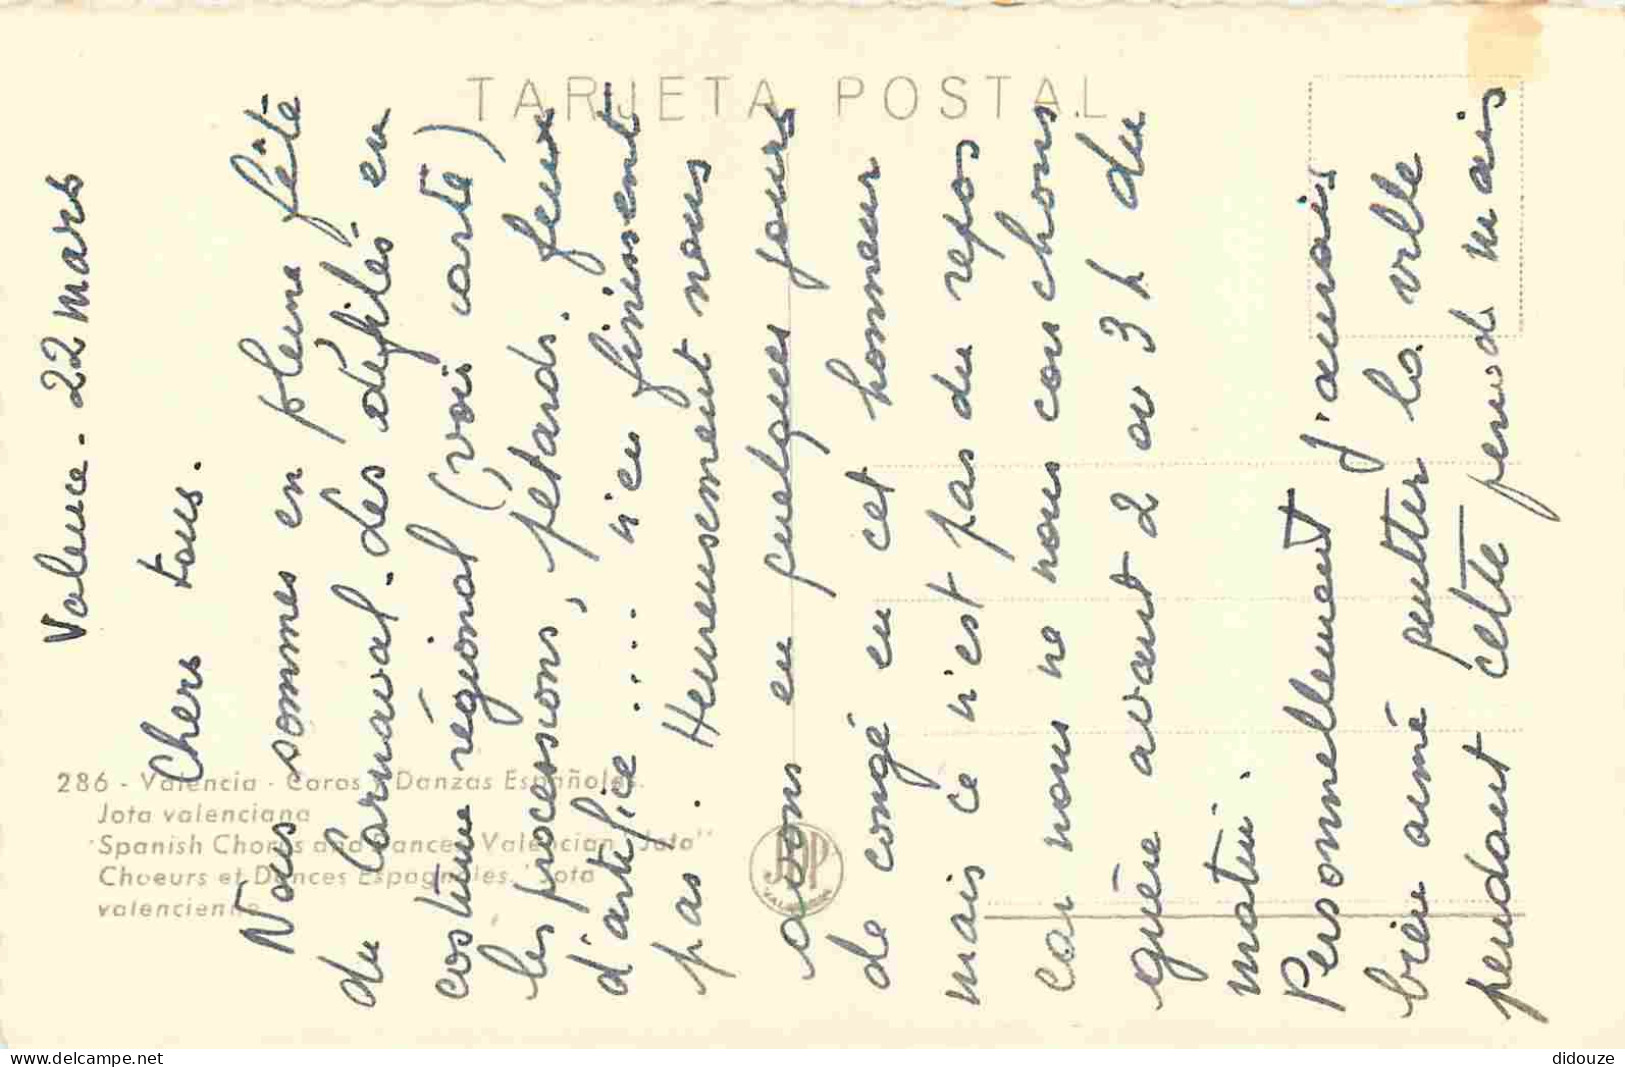 TARJETA POSTAL
286 - Valencia - Coros y Danzas Españolas.
Jota valenciana
Spanish Chorus and Dances. Valencian "Jota"
Choeurs et Dances Espagnoles. "Jota
valencienne
Valence - 22 mars
Chers tous.
Nous sommes en pleine fête
du Carnaval. des défilés en
costume régional (voir carte)
les processions, pétards. feux
d'artifice .... n'en finissent
pas. Heureusement nous
avons eu quelques jours
de congé en cet honneur
mais ce n'est pas du repos
car nous ne nous couchons
guère avant 2 ou 3 h du
matin.
Personnellement j'aurais
bien aimé quitter la ville
pendant cette period mais
www.delcampe.net
didouze